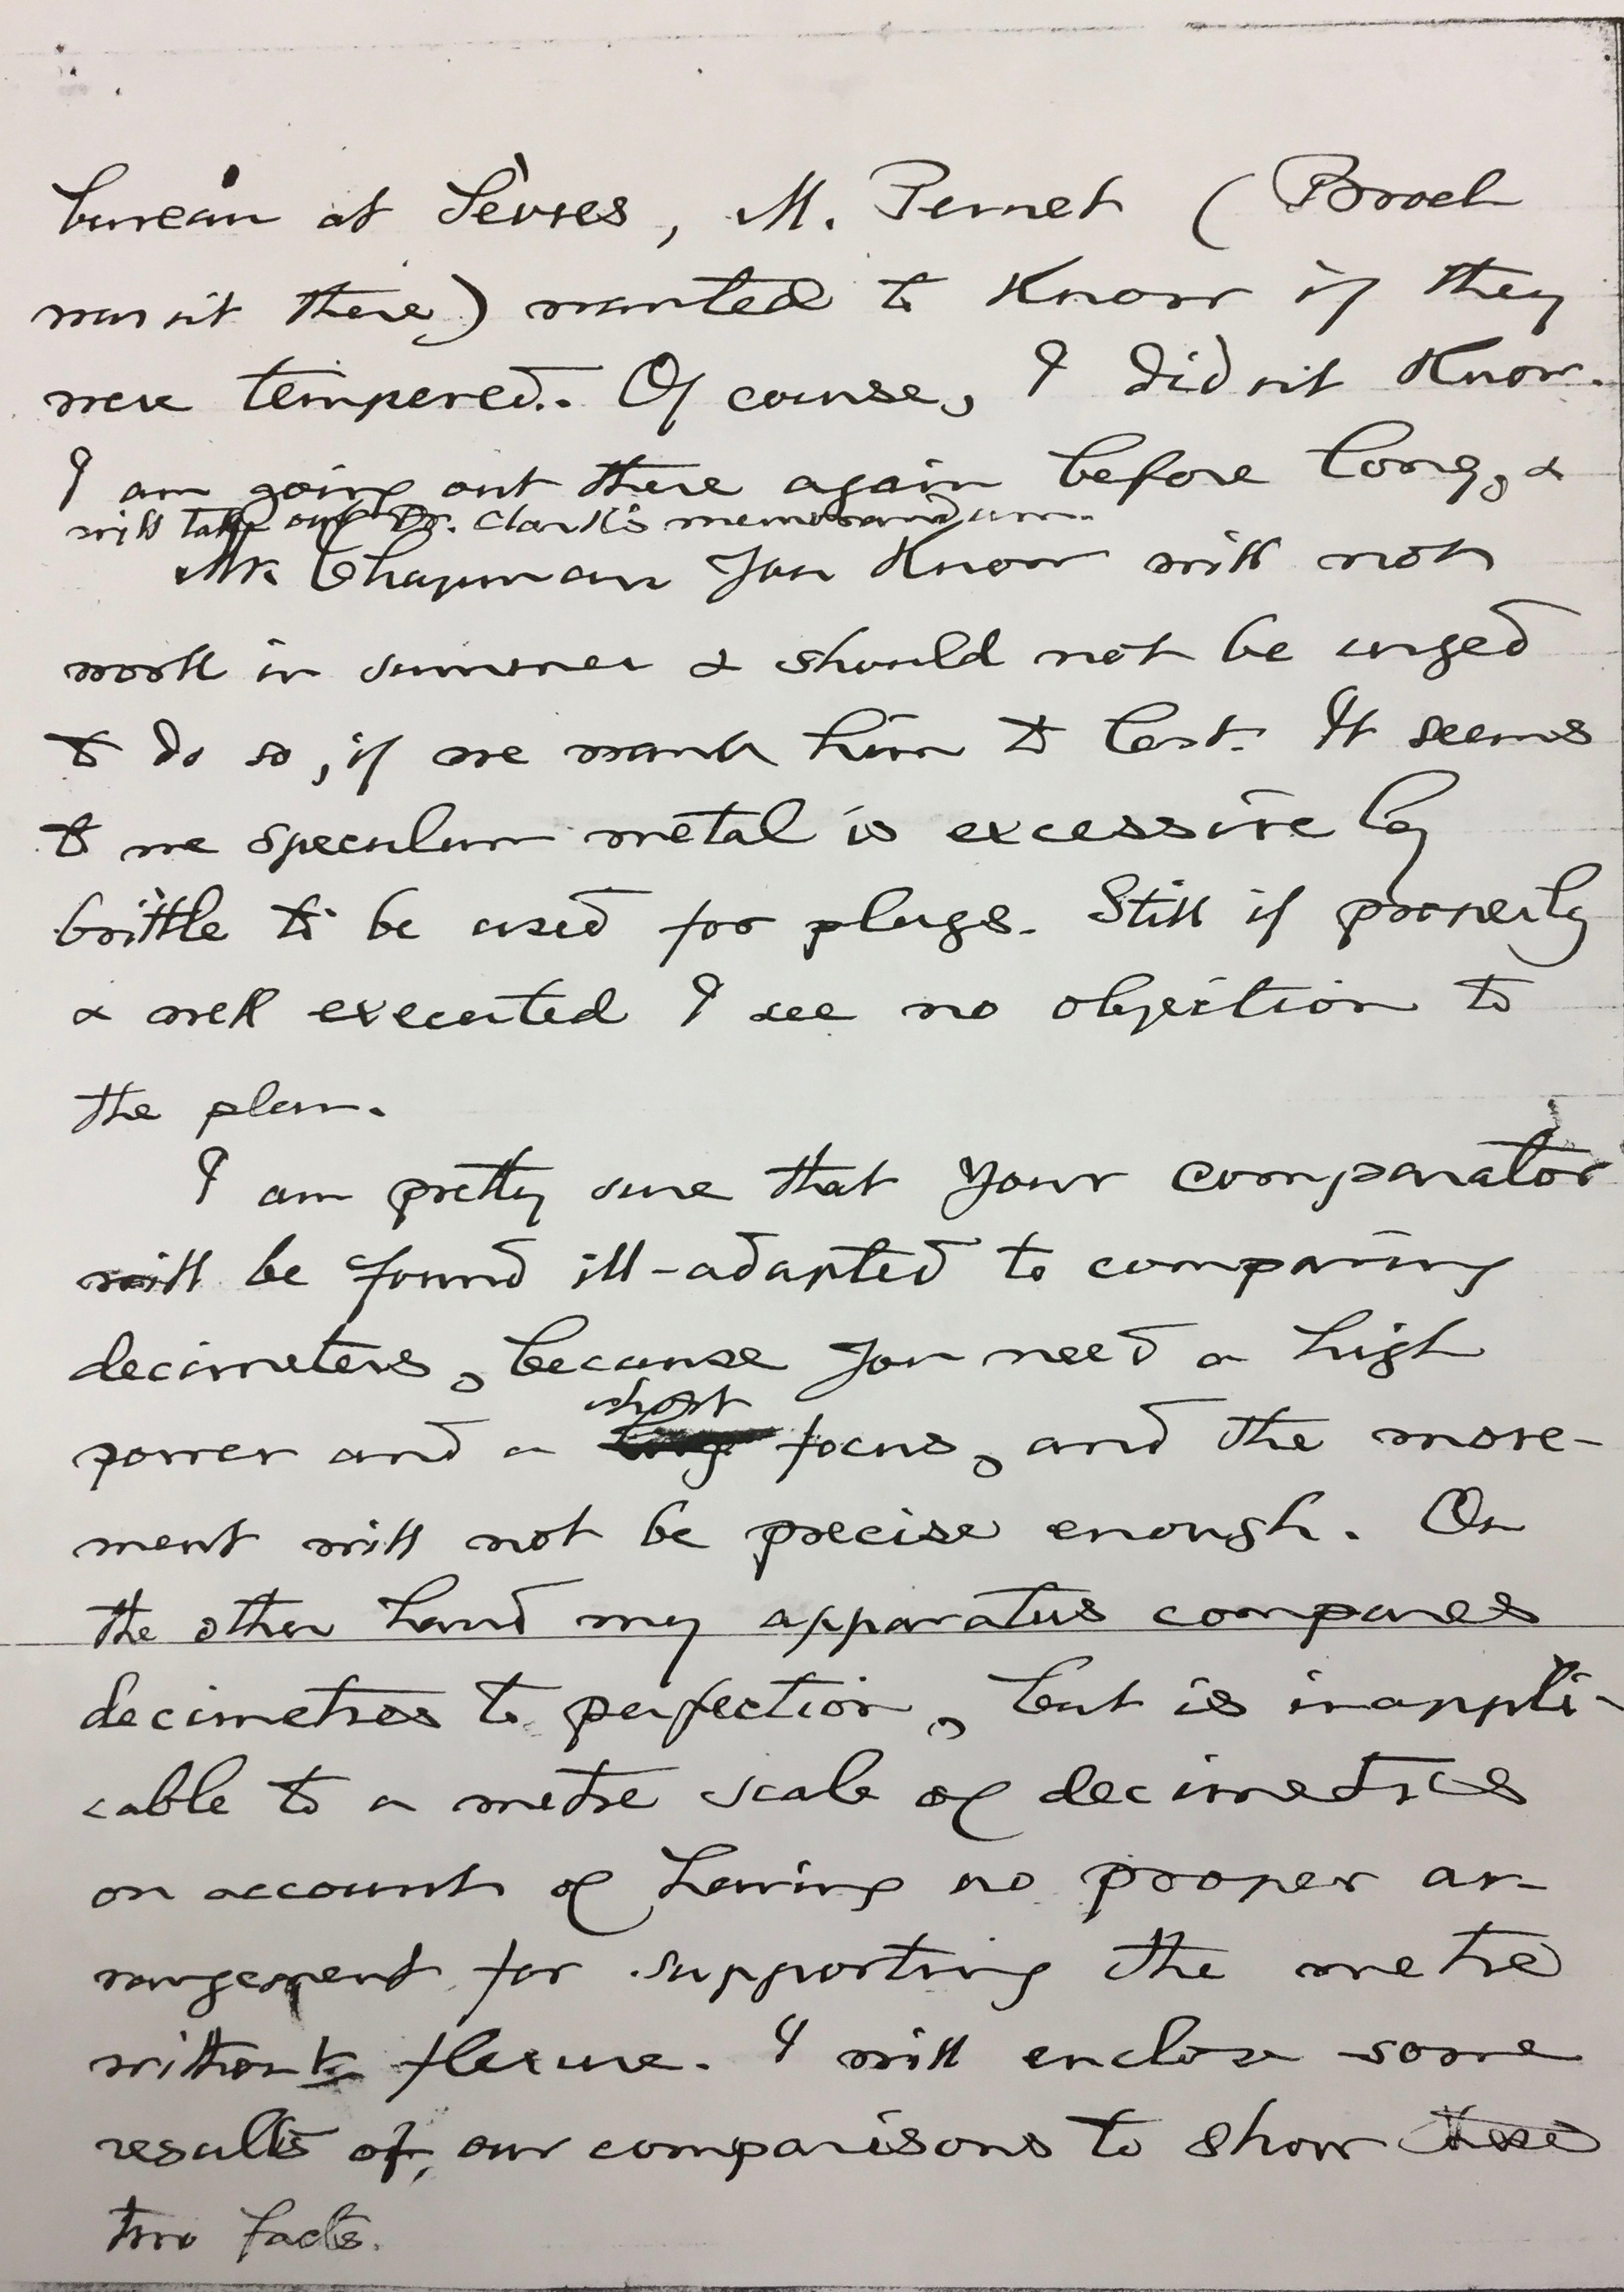 bureau at Sèvres, M. Pernet (Broch
wasn't there) wanted to know if they
were tempered. Of course, I didn't know.
I am going out there again before long, &
will take out Dr. Clark's memorandum.
Mr. Chapman you know will not
work in summer & should not be urged
to do so, if we want him to last. It seems
to me speculum metal is excessively
brittle to be used for plugs. Still if properly
& well executed I see no objection to
the plan.
I am pretty sure that your comparator
will be found ill-adapted to comparing
decimeters, because you need a high
short
power and a long focus, and the move-
ment will not be precise enough. On
the other hand my apparatus compares
decimetres to perfection, but is inappli-
cable to a metre scale of decimetres
on account of having no proper ar-
rangement for supporting the metre
without flexure. I will enclose some
results of our comparisons to show these
two facts.